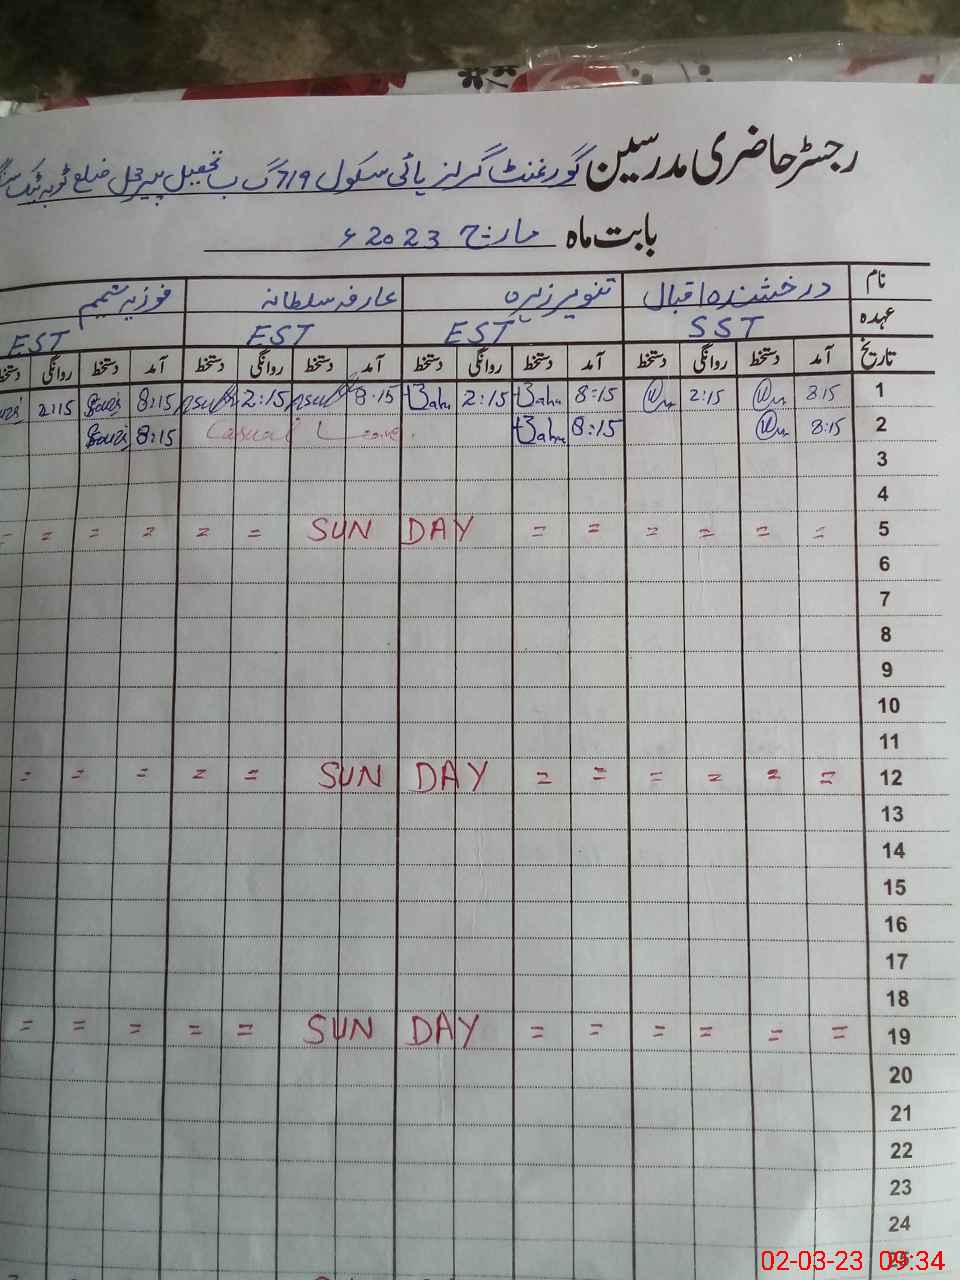 رجسٹر حاضری مدرسین گورنمنٹ گرلز ہائی سکول 719 گ ب تحصیل پیر محل ضلع ٹوبہ ٹیک
بابت ماہ مارچ 2023 ء
نام درخشندہ اقبال تنویر زہرہ عارفہ سلطانہ فوزیہ شمیم
عہدہ SST EST EST EST
تاریخ آمد دستخط روانگی دستخط آمد دستخط روانگی دستخط آمد دستخط روانگی دستخط آمد دستخط روانگی
1 8:15 2:15 8:15 2:15 8:15 2:15 8:15 2:15
2 8:15 8:15 Casual Leave 8:15
3
4
5 = = = = = = SUN DAY = = = = = =
6
7
8
9
10
11
12 = = = = = = SUN DAY = = = = =
13
14
15
16
17
18
19 = = = = = = SUN DAY = = = = =
20
21
22
23
24
25
02-03-23 09:34